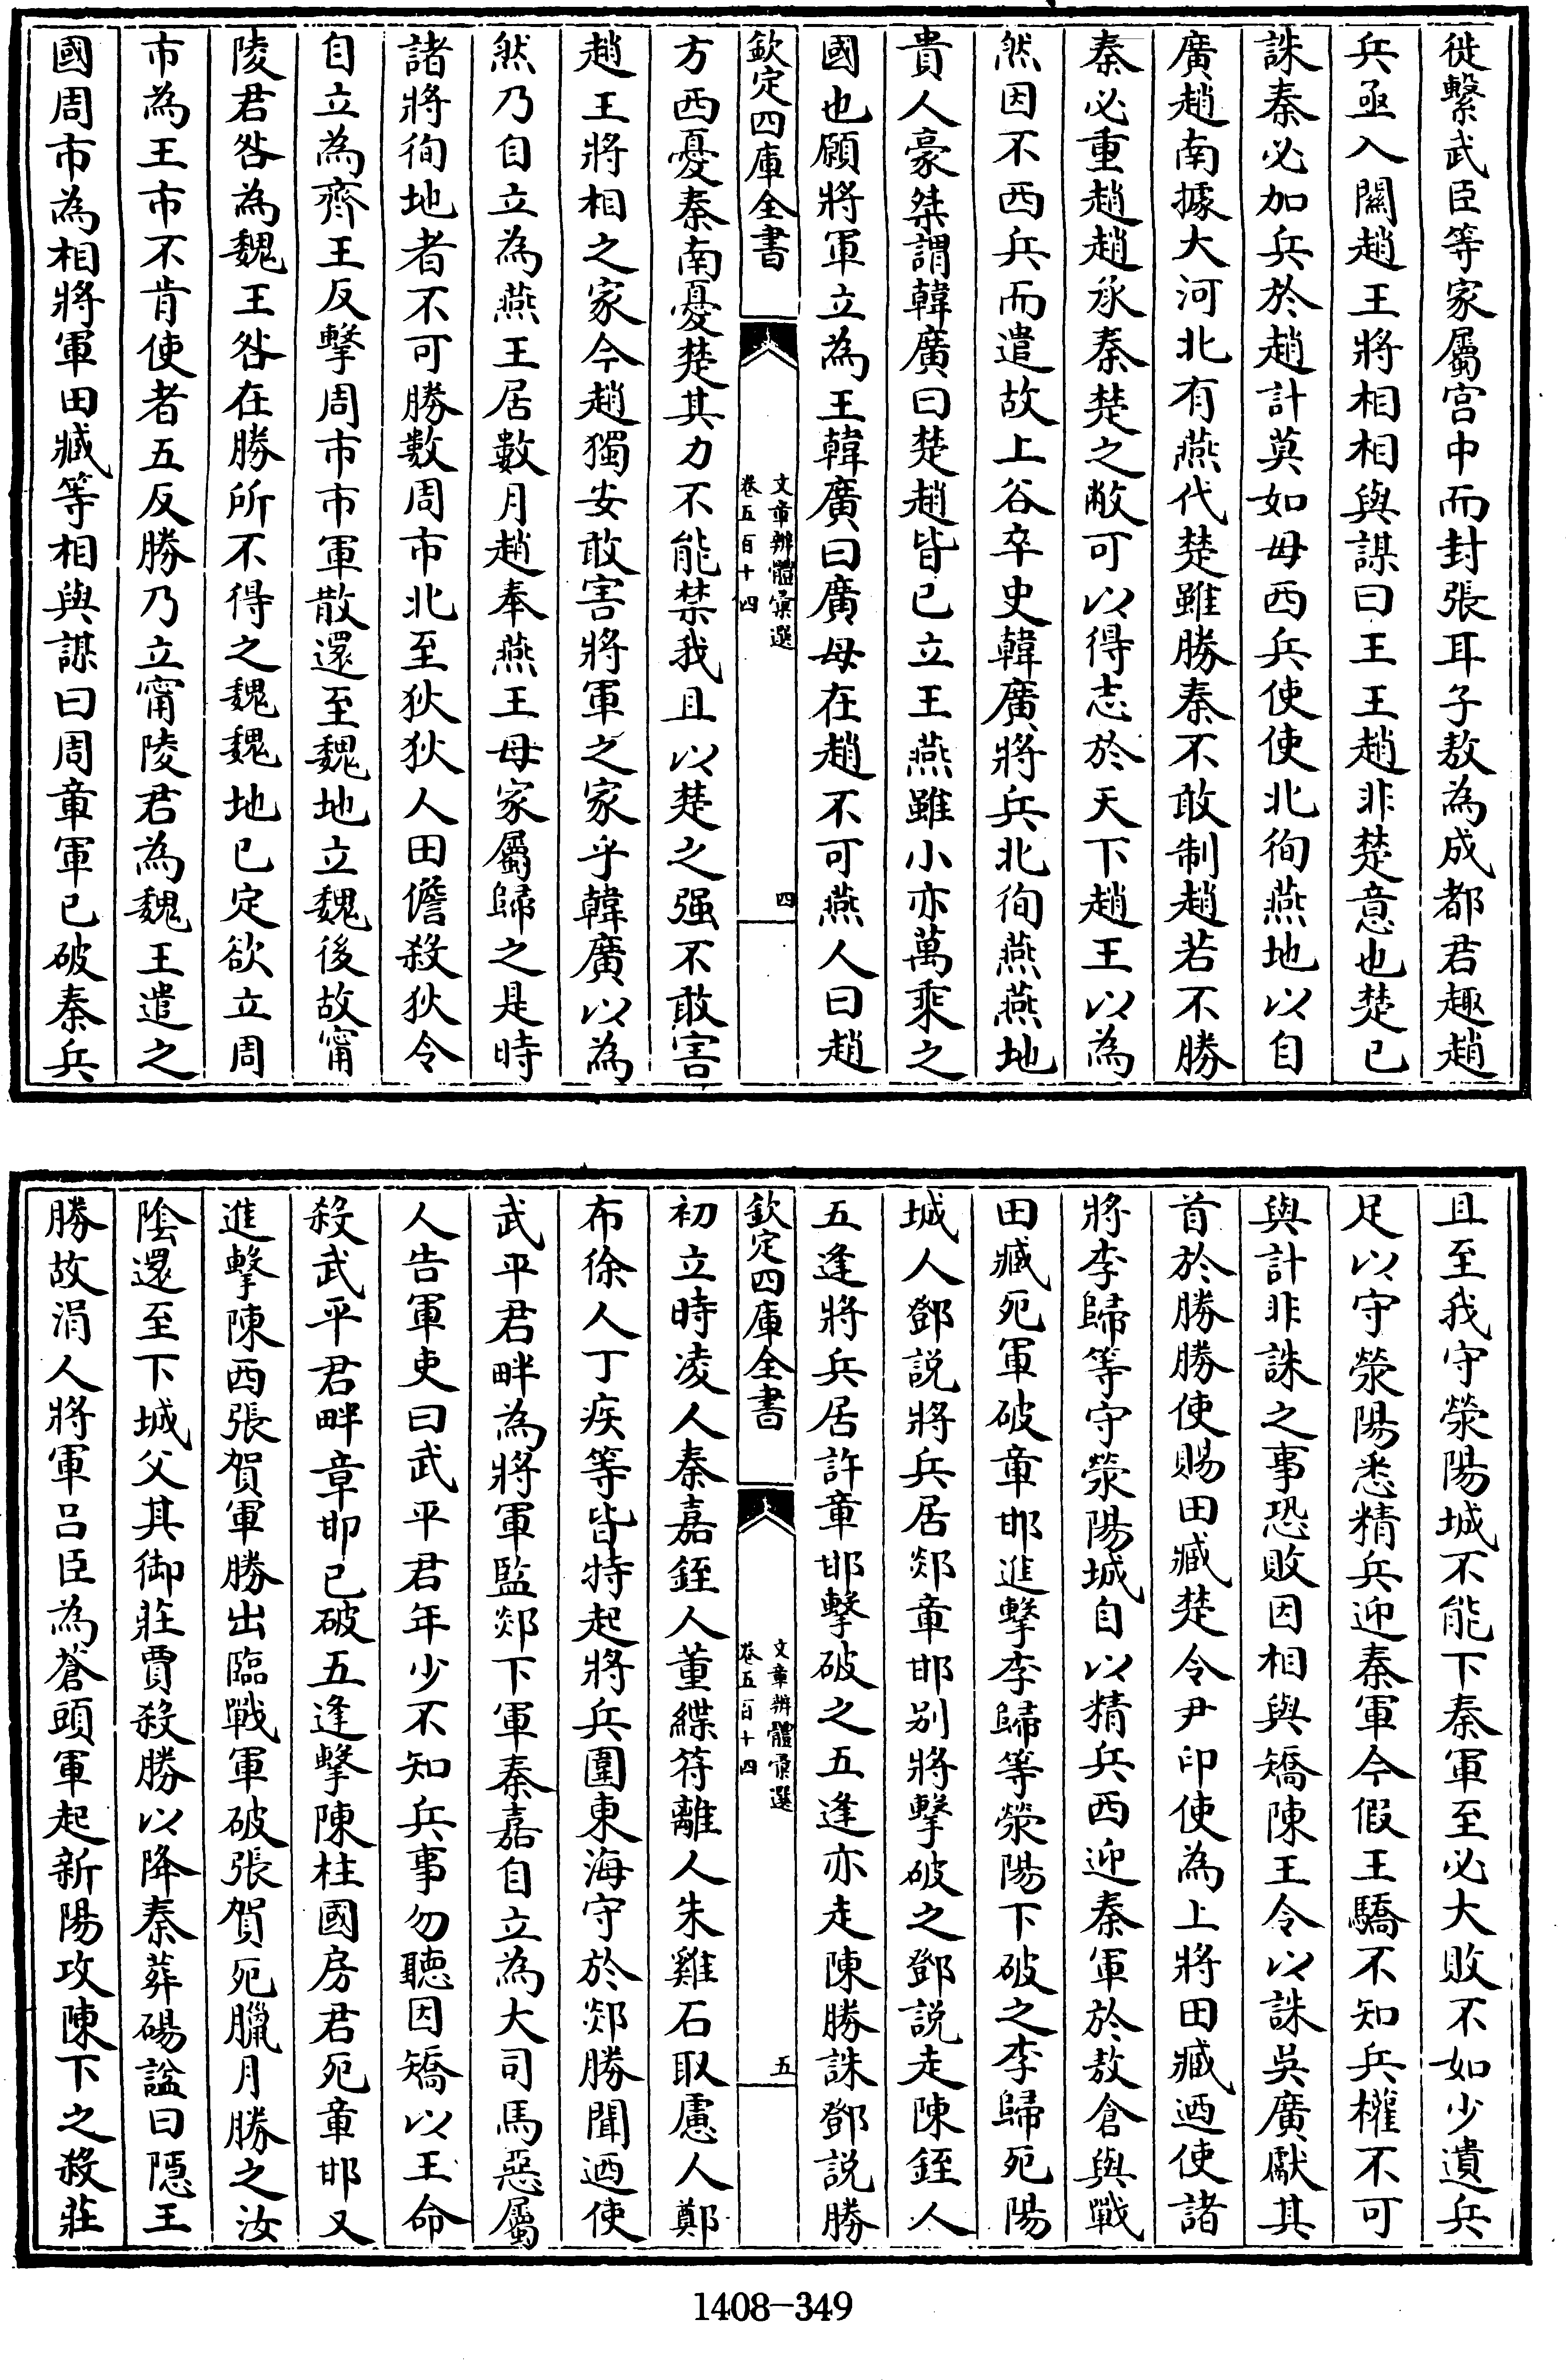 徙繫武臣等家屬宫中而封張耳子敖為成都君趣趙
兵亟入關趙王將相相與謀曰王王趙非楚意也楚已
誅秦必加兵於趙計莫如毋西兵使使北徇燕地以自
廣趙南據大河北有燕代楚雖勝秦不敢制趙若不勝
秦必重趙趙承秦楚之敝可以得志於天下趙王以為
然因不西兵而遣故上谷卒史韓廣將兵北徇燕燕地
貴人豪桀謂韓廣曰楚趙皆已立王燕雖小亦萬乘之
國也願將軍立為王韓廣曰廣母在趙不可燕人曰趙
欽定四庫全書
文章辨體彙選
卷五百十四
四
方西憂秦南憂楚其力不能禁我且以楚之强不敢害
趙王將相之家今趙獨安敢害將軍之家乎韓廣以為
然乃自立為燕王居數月趙奉燕王母家屬歸之是時
諸將徇地者不可勝數周市北至狄狄人田儋殺狄令
自立為齊王反擊周市市軍散還至魏地立魏後故甯
陵君咎為魏王咎在勝所不得之魏魏地已定欲立周
市為王市不肯使者五反勝乃立甯陵君為魏王遣之
國周市為相將軍田臧等相與謀曰周章軍已破秦兵
且至我守滎陽城不能下秦軍至必大敗不如少遺兵
足以守滎陽悉精兵迎秦軍今假王驕不知兵權不可
與計非誅之事恐敗因相與矯陳王令以誅吳廣獻其
首於勝勝使賜田臧楚令尹印使為上將田臧迺使諸
將李歸等守滎陽城自以精兵西迎秦軍於敖倉與戰
田臧死軍破章邯進擊李歸等滎陽下破之李歸死陽
城人鄧説將兵居郯章邯别將擊破之鄧説走陳銍人
五逢將兵居許章邯擊破之五逢亦走陳勝誅鄧説勝
欽定四庫全書
文章辨體彙選
卷五百十四
五
初立時凌人秦嘉銍人董緤符離人朱雞石取慮人鄭
布徐人丁疾等皆特起將兵圍東海守於郯勝聞迺使
武平君畔為將軍監郯下軍秦嘉自立為大司馬惡屬
人告軍吏曰武平君年少不知兵事勿聽因矯以王命
殺武平君畔章邯已破五逢擊陳柱國房君死章邯又
進擊陳西張賀軍勝出臨戰軍破張賀死臘月勝之汝
隂還至下城父其御莊賈殺勝以降秦葬碭諡曰隱王
勝故涓人將軍吕臣為蒼頭軍起新陽攻陳下之殺莊
1408-349